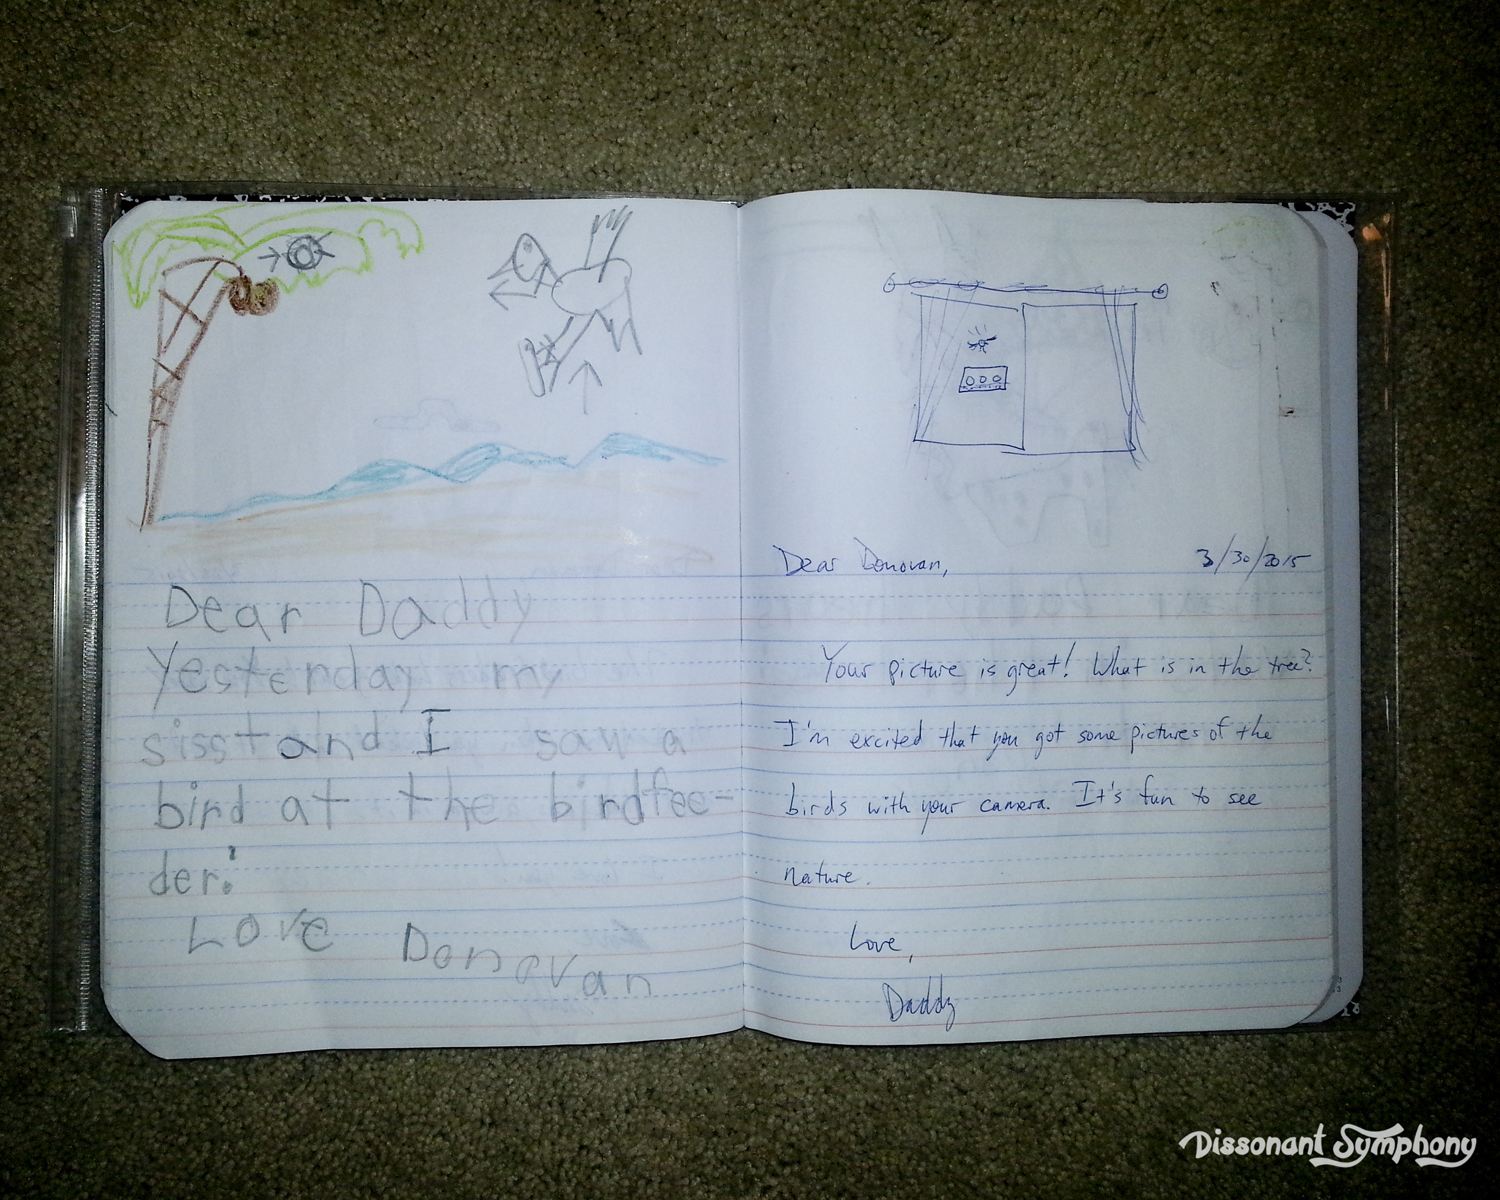 Dear Daddy
Yesterday my
sisst and I saw a
bird at the birdfee-
der!
Love Donovan
Dear Donovan, 3/30/2015
Your picture is great! What is in the tree?
I'm excited that you got some pictures of the
birds with your camera. It's fun to see
nature.
Love,
Daddy
Dissonant Symphony